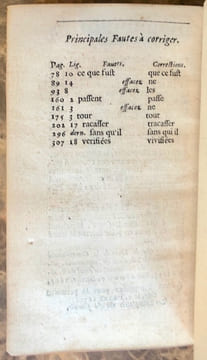 Principales Fautes à corriger.
Pag. Lig. Fautes. Corrections.
78 10 ce que fust que ce fust
89 14 effacez ne
93 8 effacez les
160 2 passent passe
161 3 effacez ne
175 3 tour tout
202 17 racasser tracasser
296 dern. sans qu'il sans qui il
307 18 verifiées vivifiées